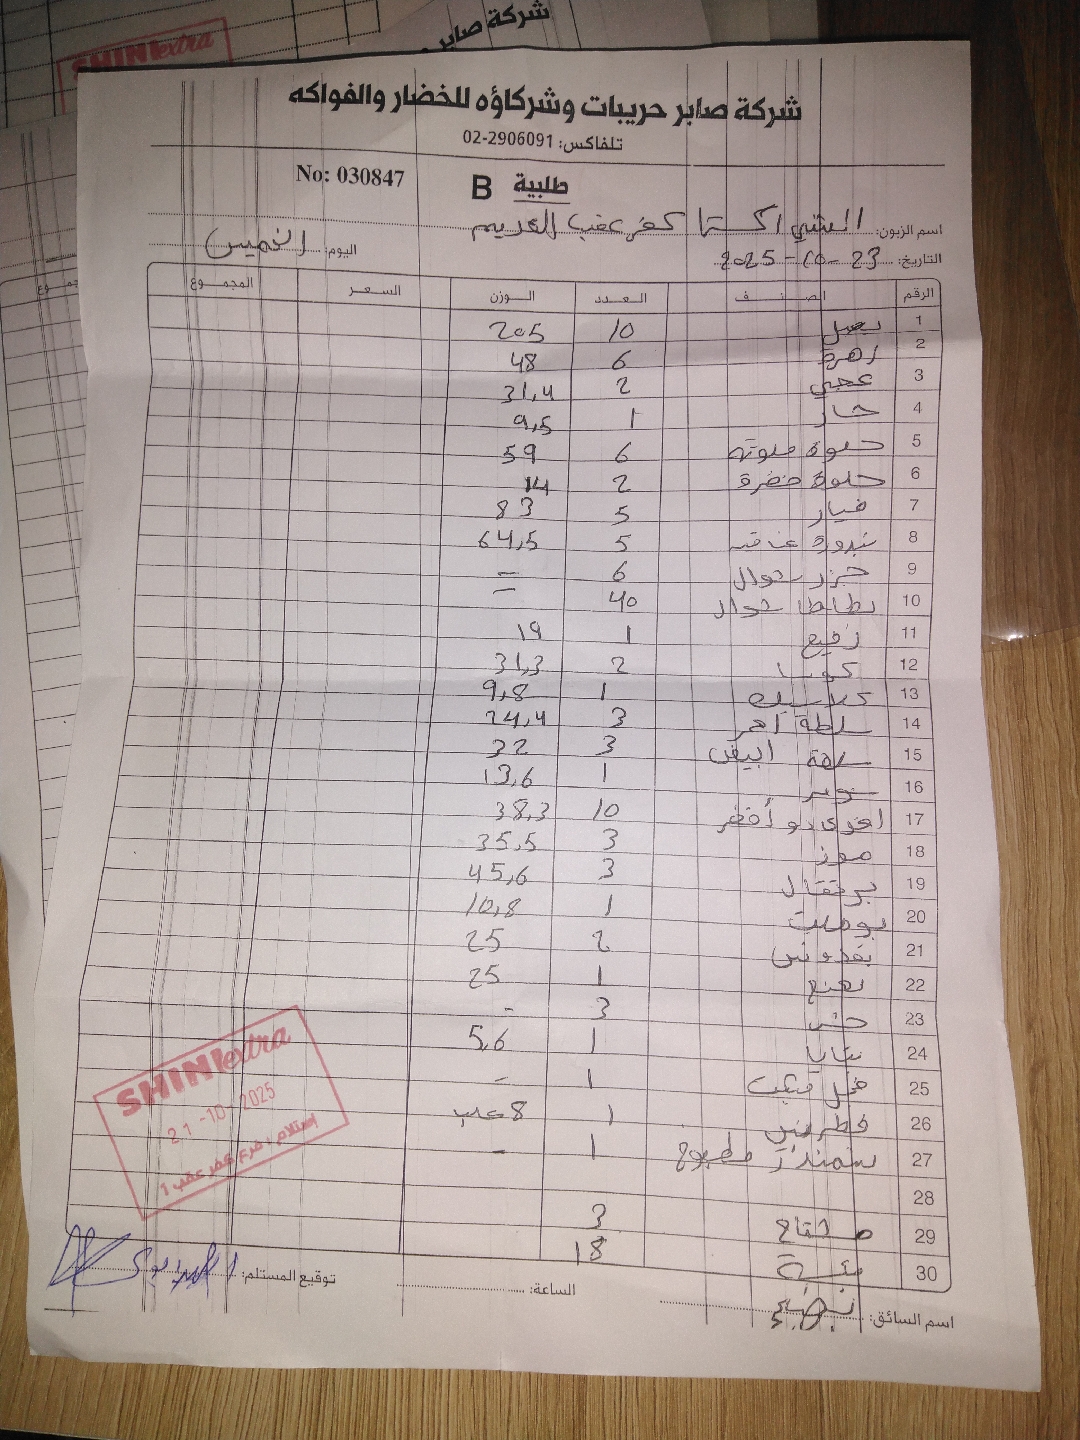 شركة صابر
SHINI extra
شركة صابر حريبات وشركاؤه للخضار والفواكه
تلفاكس: 02-2906091
No: 030847
طلبية B
اسم الزبون: الشني اكسترا كفر عقب القديم
التاريخ: 23-10-2025 اليوم: الخميس
الرقم الصنف العدد الوزن السعر المجموع
1 بصل 10 205
2 زهرة 6 48
3 عجمي 2 31,4
4 حار 1 9,5
5 حلوة ملونه 6 59
6 حلوة خضرة 2 14
7 خيار 5 83
8 بندورة 5 64,5
9 جزر شوال 6 -
10 بطاطا شوال 40 -
11 رفيع 1 19
12 كوسا 2 31,3
13 كلاسيك 1 9,8
14 سلطة احمر 3 24,4
15 سلطة ابيض 3 32
16 1 13,6
17 افوكادو أخضر 10 38,3
18 موز 3 35,5
19 برتقال 3 45,6
20 بوملت 1 10,8
21 بقدونس 2 25
22 نعنع 1 25
23 خس 3 -
24 1 5,6
25 فجل 1 -
26 فطر 1 8 علب
27 شمندر مطبوخ 1 -
28
29 3
30 18
SHINI extra
21-10-2025
إستلام فرع كفر عقب 1
توقيع المستلم:
الساعة:
اسم السائق: